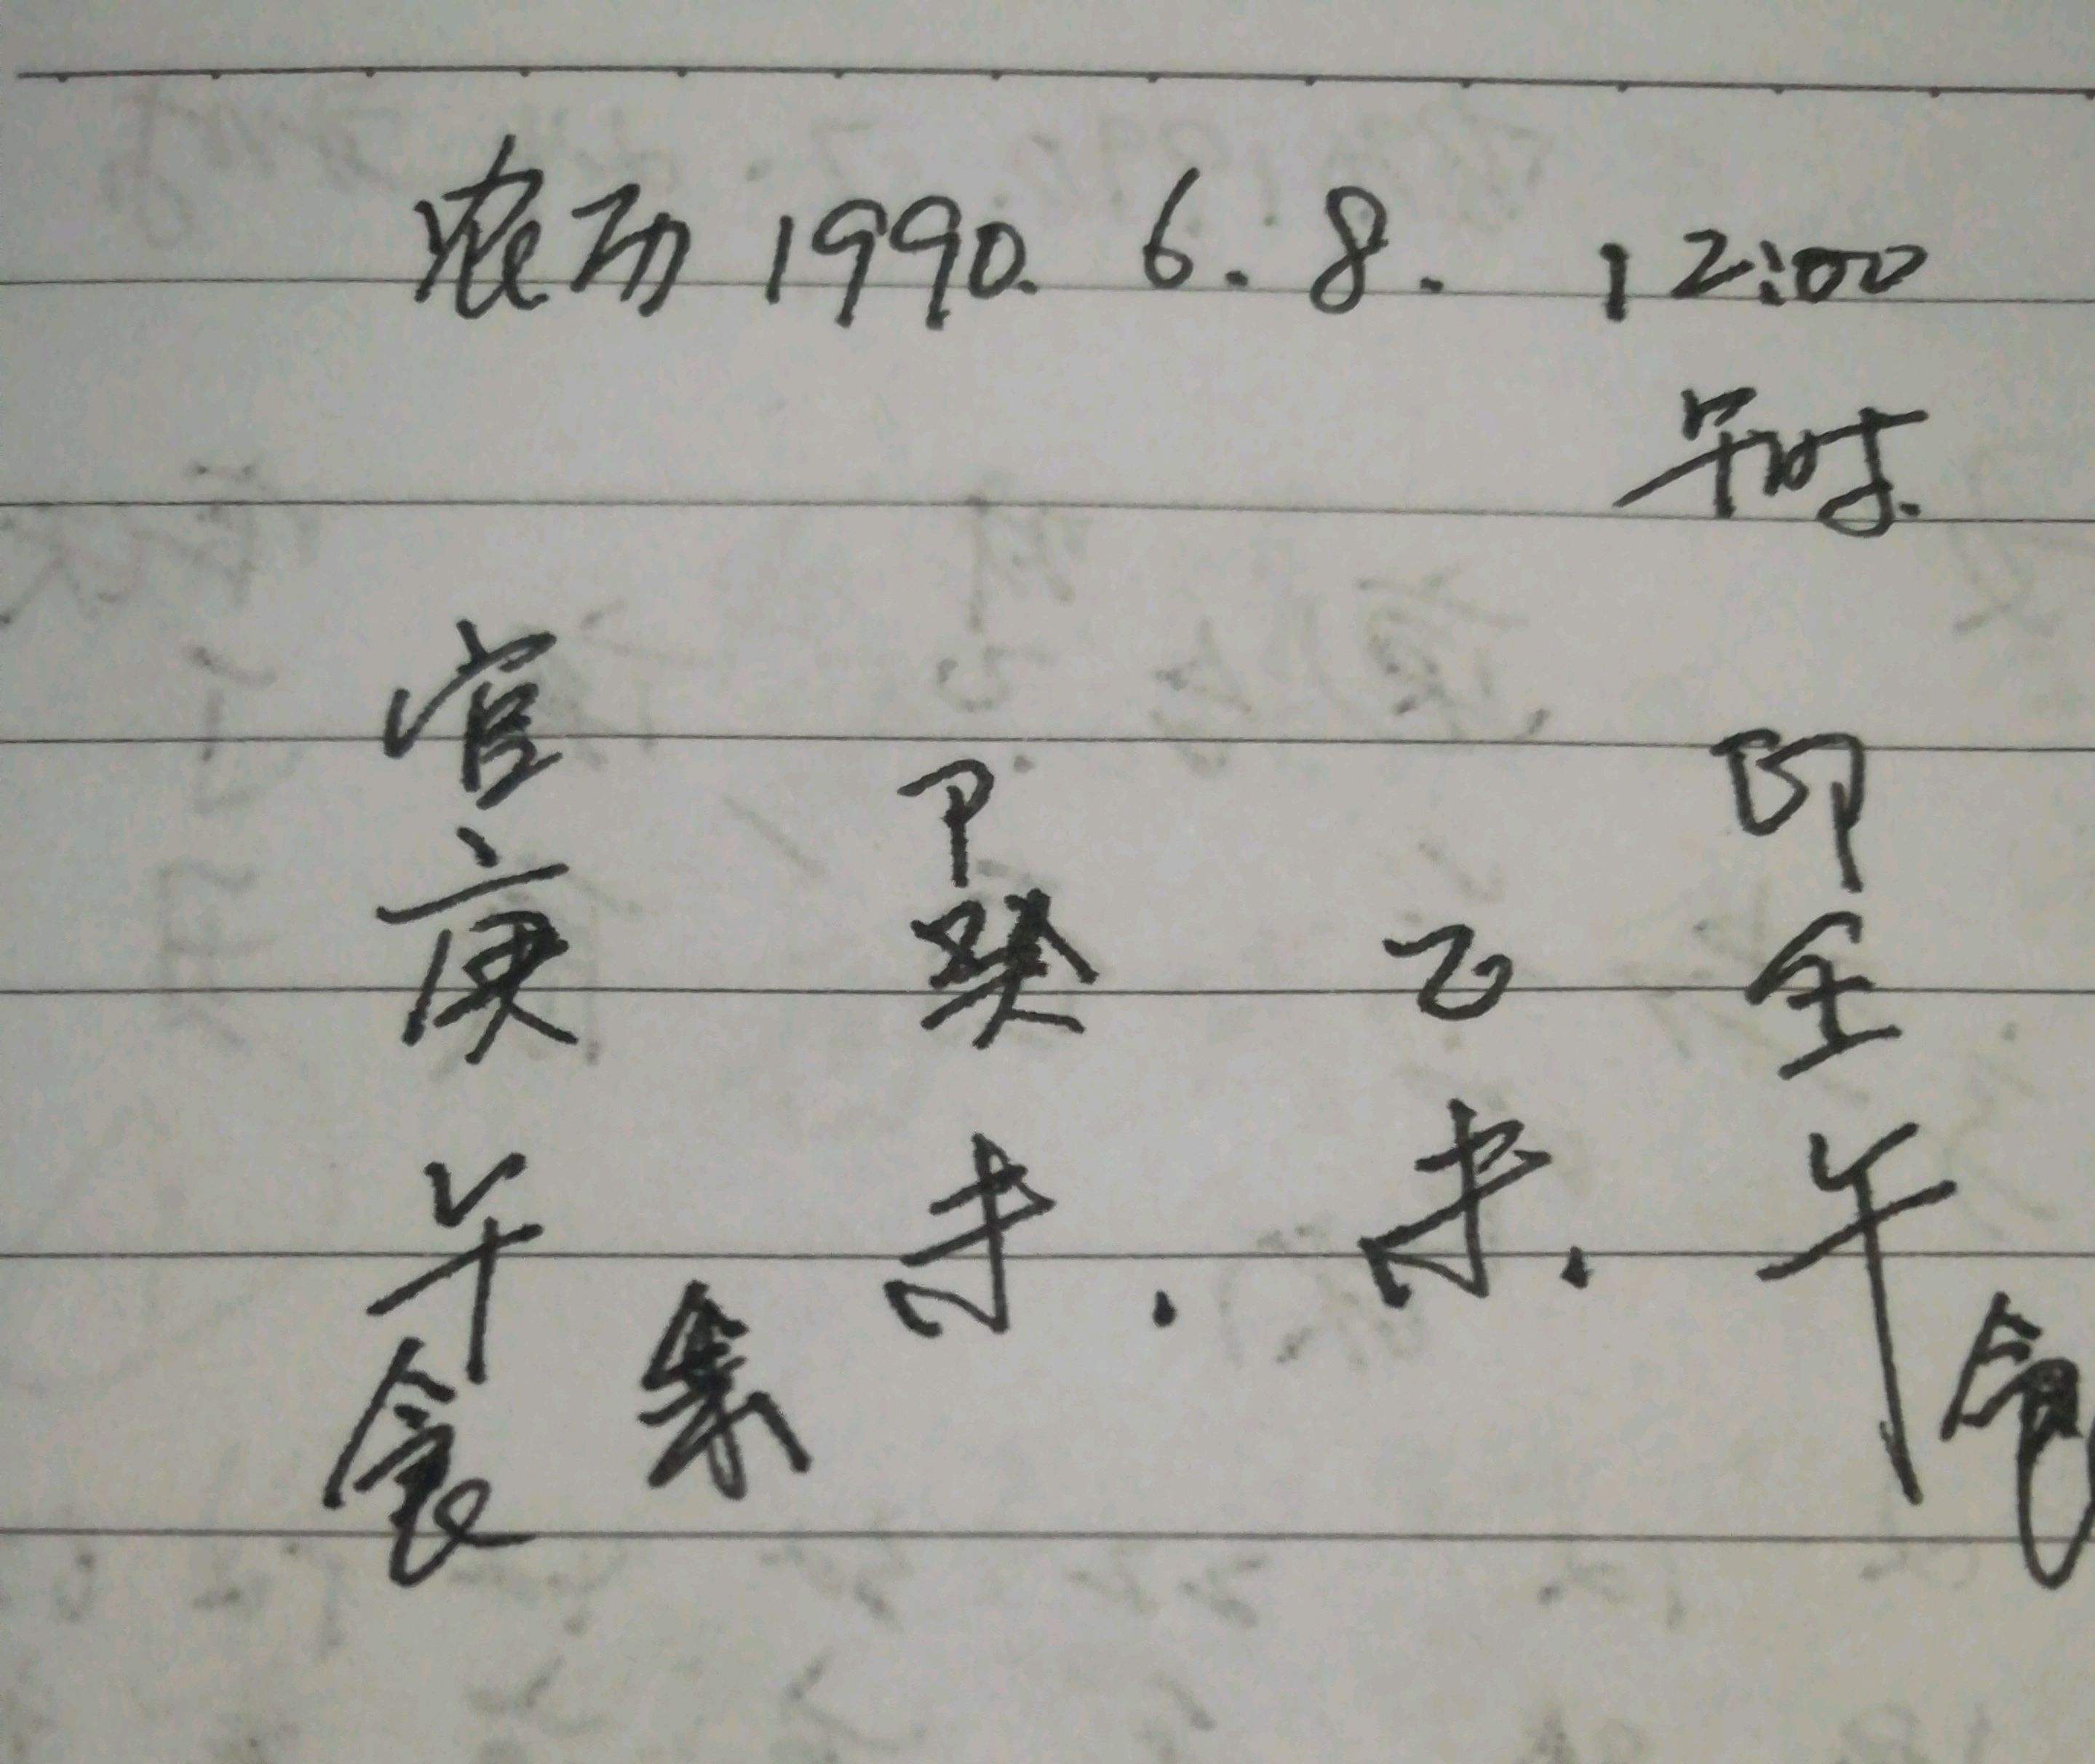 农历 1990. 6. 8. 12:00
午时.
官 卩 印
庚 癸 乙 壬
午 未. 未. 午
食